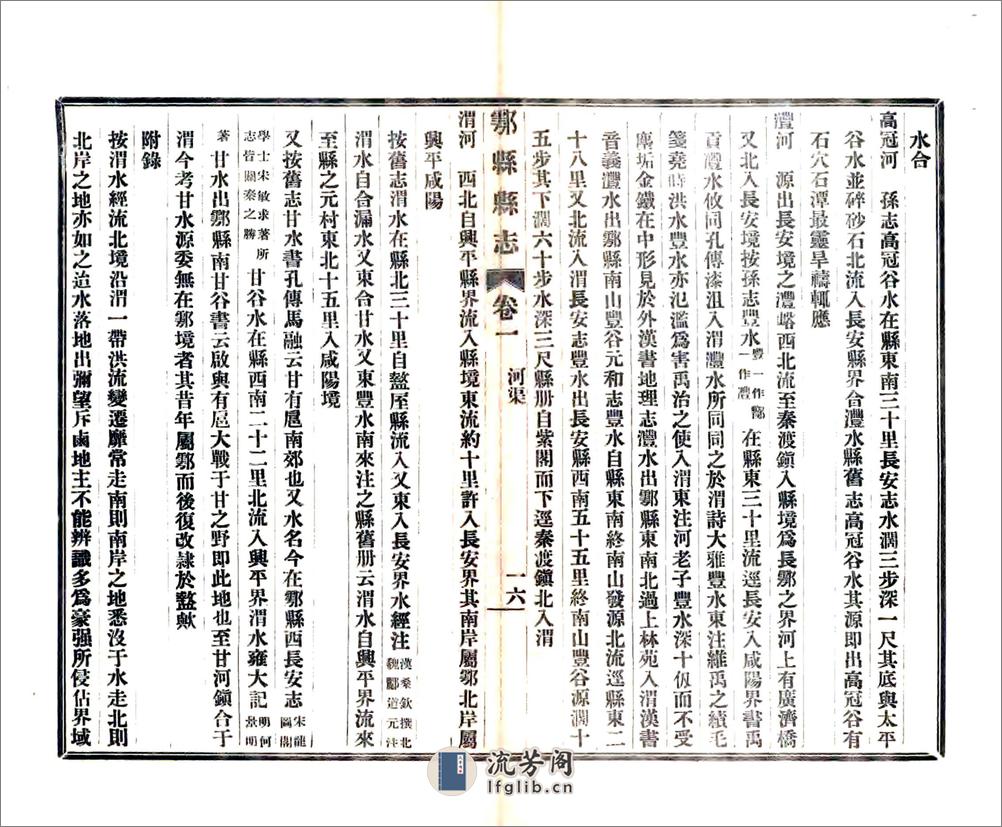 水合
高冠河　孫志高冠谷水在縣東南三十里長安志水濶三步深一尺其底與太平
谷水並碎砂石北流入長安縣界合灃水縣舊志高冠谷水其源即出高冠谷有
石穴石潭最靈旱禱輒應
灃河　源出長安境之灃峪西北流至秦渡鎮入縣境爲長鄠之界河上有廣濟橋
又北入長安境按孫志豐水豐一作酆一作灃在縣東三十里流逕長安入咸陽界書禹
貢灃水攸同孔傳漆沮入渭灃水所同同之於渭詩大雅豐水東注維禹之績毛
箋堯時洪水豐水亦氾濫爲害禹治之使入渭東注河老子豐水深十仭而不受
塵垢金鐵在中形見於外漢書地理志灃水出鄠縣東南北過上林苑入渭漢書
音義灃水出鄠縣南山豐谷元和志豐水自縣東南終南山發源北流逕縣東二
十八里又北流入渭長安志豐水出長安縣西南五十五里終南山豐谷源濶十
五步其下濶六十步水深三尺縣册自紫閣而下逕秦渡鎮北入渭
鄠縣縣志　卷一　河渠　一六
渭河　西北自興平縣界流入縣境東流約十里許入長安界其南岸屬鄠北岸屬
興平咸陽
按舊志渭水在縣北三十里自盩厔縣流入又東入長安界水經注漢桑欽撰北魏酈道元注
渭水自合漏水又東合甘水又東豐水南來注之縣舊册云渭水自興平界流來
至縣之元村東北十五里入咸陽境
又按舊志甘水書孔傳馬融云甘有扈南郊也又水名今在鄠縣西長安志宋龍圖閣
學士宋敏求著所志皆關秦之勝甘谷水在縣西南二十二里北流入興平界渭水雍大記明何景明
著甘水出鄠縣南甘谷書云啟與有扈大戰于甘之野即此地也至甘河鎮合于
渭今考甘水源委無在鄠境者其昔年屬鄠而後復改隸於盩歟
附錄
按渭水經流北境沿渭一帶洪流變遷靡常走南則南岸之地悉沒于水走北則
北岸之地亦如之迨水落地出彌望斥鹵地主不能辨識多爲豪强所侵佔界域
流芳阁
lfglib.cn